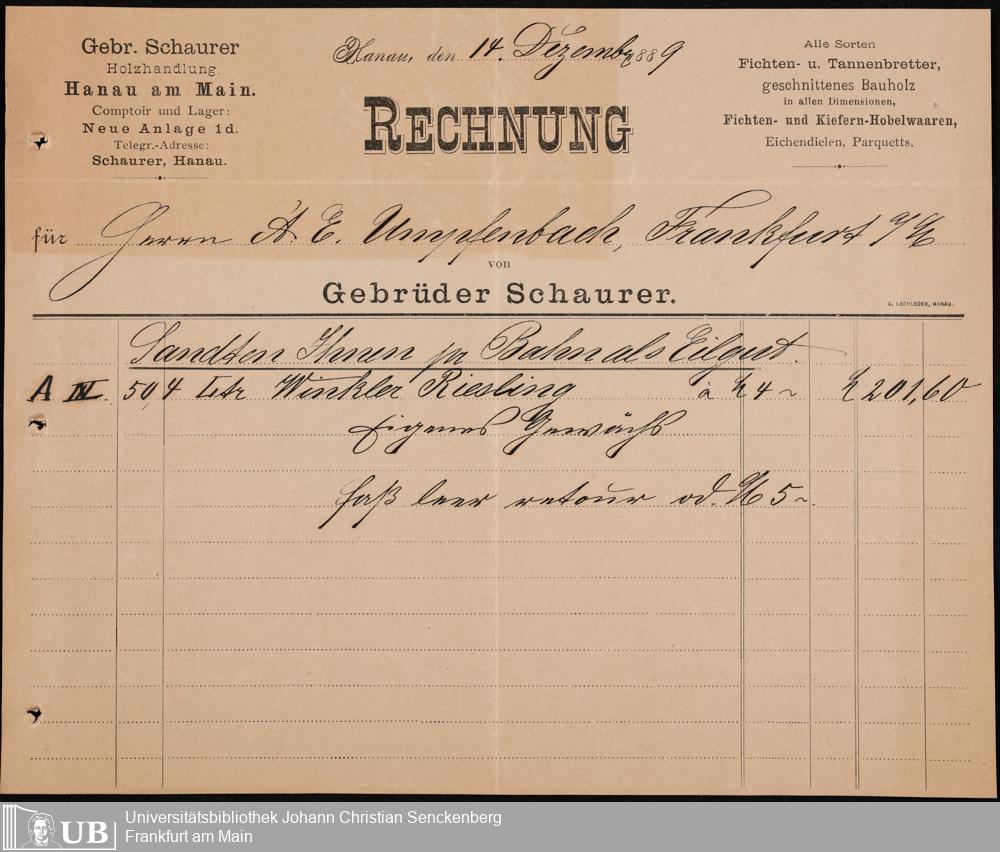 Gebr. Schaurer
Holzhandlung.
Hanau am Main.
Comptoir und Lager:
Neue Anlage 1d.
Telegr.-Adresse:
Schaurer, Hanau.
Hanau, den 14. Dezemb 1889
RECHNUNG
Alle Sorten
Fichten- u. Tannenbretter,
geschnittenes Bauholz
in allen Dimensionen,
Fichten- und Kiefern-Hobelwaaren,
Eichendielen, Parquetts.
für Herrn A. E. Umpfenbach, Frankfurt a/M
von
Gebrüder Schaurer.
C. LECHLEDER, HANAU.
Sandten Ihnen pr Bahn als Eilgut.
A IV. 50,4 Ltr Winkler Riesling à M 4 ~ M 201,60
Eigenes Gewächs
Faß leer retour od. M 5 ~.
UB
Universitätsbibliothek Johann Christian Senckenberg
Frankfurt am Main